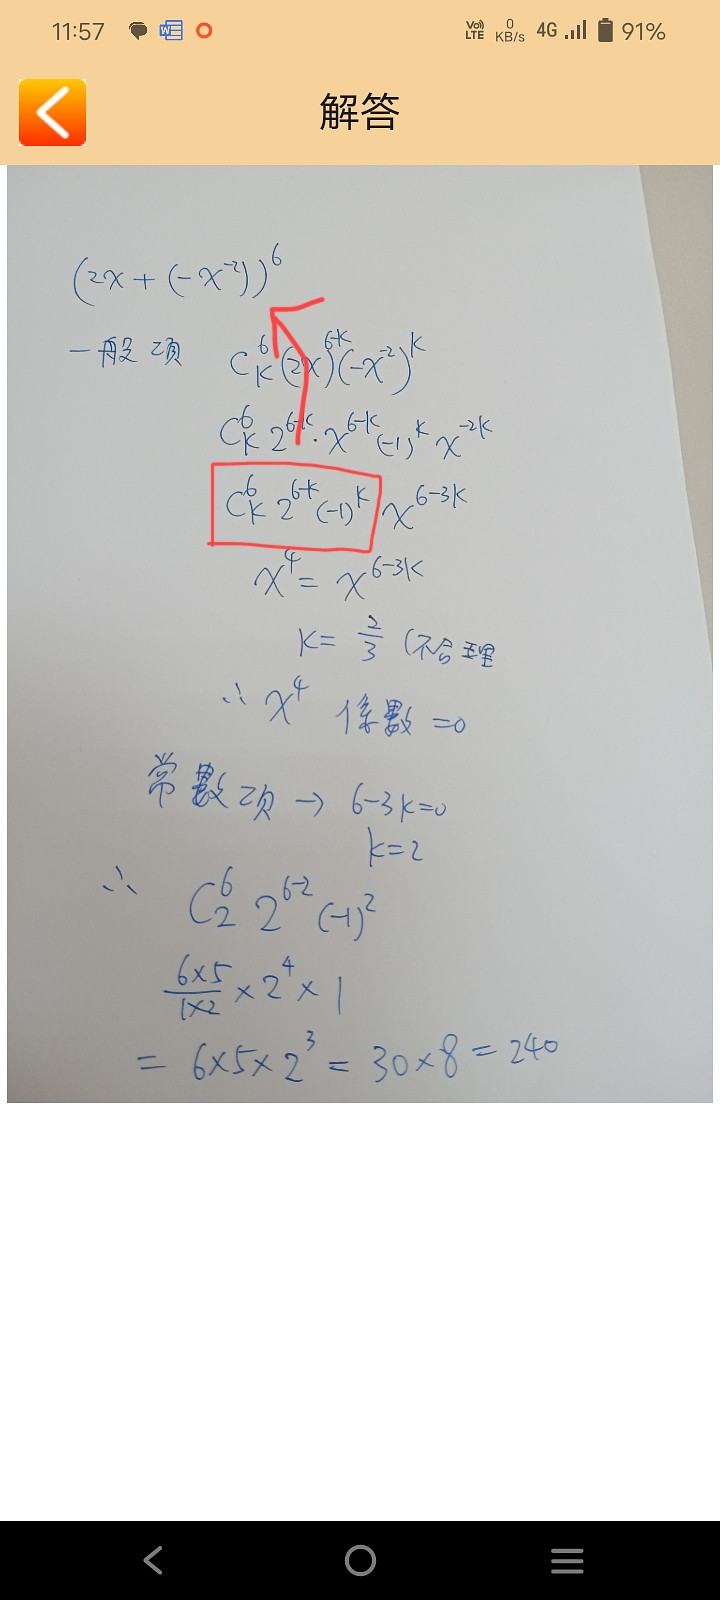 11:57 Vo) LTE 0 KB/s 4G 91%
解答
(2x + (-x⁻²))⁶
一般項 C⁶ₖ (2x)⁶⁻ᵏ (-x⁻²)ᵏ
C⁶ₖ 2⁶⁻ᵏ · x⁶⁻ᵏ (-1)ᵏ x⁻²ᵏ
C⁶ₖ 2⁶⁻ᵏ (-1)ᵏ x⁶⁻³ᵏ
x⁴ = x⁶⁻³ᵏ
k = 2/3 (不合理
∴ x⁴ 係數 = 0
常數項 → 6-3k=0
k=2
∴ C⁶₂ 2⁶⁻² (-1)²
6×5/1×2 × 2⁴ × 1
= 6×5×2³ = 30×8 = 240